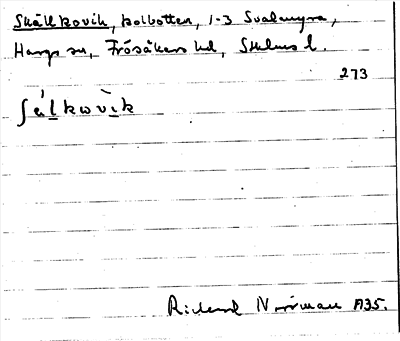 Skällkovik, kolbotten, 1-3 Svalmyra,
Hargs sn, Frösåkers hd, Sthlms l.
273
ʃälkovìk
Richard Norrman A35.